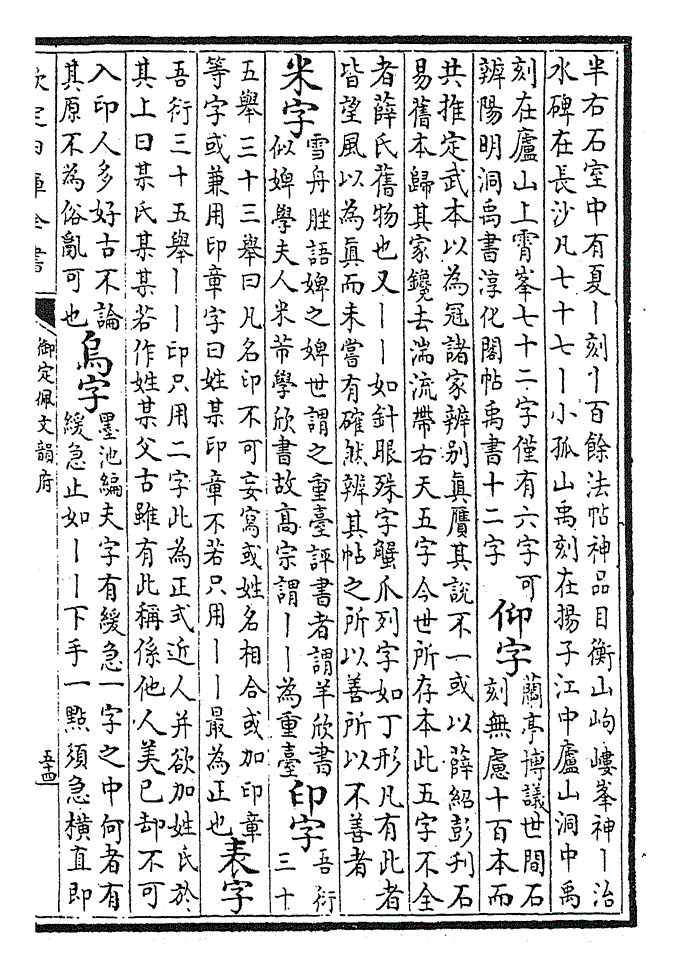 半右石室中有夏丨刻丨百餘法帖神品目衡山岣嶁峯神丨治
水碑在長沙凡七十七丨小孤山禹刻在揚子江中廬山洞中禹
刻在廬山上霄峯七十二字僅有六字可
辨陽明洞禹書淳化閣帖禹書十二字
仰字
蘭亭博議世間石
刻無慮十百本而
共推定武本以為冠諸家辨别真贋其說不一或以薛紹彭刋石
易舊本歸其家鑱去湍流帶右天五字今世所存本此五字不全
者薛氏舊物也又丨丨如針眼殊字蟹爪列字如丁形凡有此者
皆望風以為真而未嘗有確然辨其帖之所以善所以不善者
米字
雪舟脞語婢之婢世謂之重臺評書者謂羊欣書
似婢學夫人米芾學欣書故高宗謂丨丨為重臺
印字
吾衍
三十
五舉三十三舉曰凡名印不可妄寫或姓名相合或加印章
等字或兼用印章字曰姓某印章不若只用丨丨最為正也
表字
吾衍三十五舉丨丨印只用二字此為正式近人并欲加姓氏於
其上曰某氏某某若作姓某父古雖有此稱係他人美已却不可
入印人多好古不論
其原不為俗亂可也
烏字
墨池編夫字有緩急一字之中何者有
緩急止如丨丨下手一點須急橫直即
欽定四庫全書
御定佩文韻府
五十四